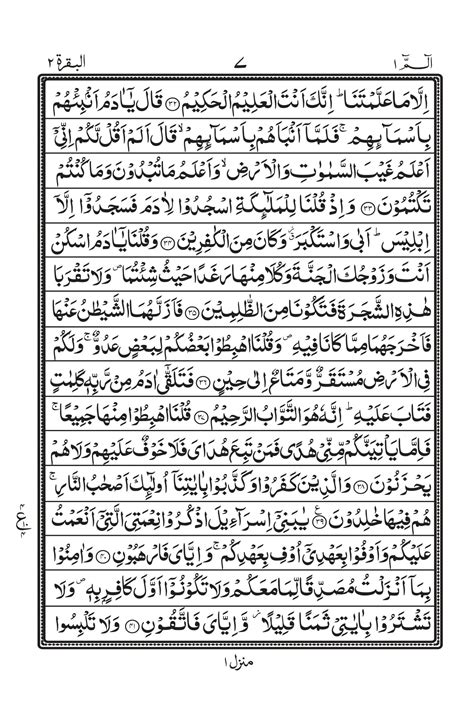 الٓـمّٓ ١ ٧ البقرة ٢
اِلَّا مَا عَلَّمْتَنَا ؕ اِنَّكَ اَنْتَ الْعَلِیْمُ الْحَكِیْمُ ﴿۳۲﴾ قَالَ یٰۤاٰدَمُ اَنْۢبِئْهُمْ
بِاَسْمَآىِٕهِمْ ۚ فَلَمَّاۤ اَنْۢبَاَهُمْ بِاَسْمَآىِٕهِمْ ۙ قَالَ اَلَمْ اَقُلْ لَّكُمْ اِنِّیْۤ
اَعْلَمُ غَیْبَ السَّمٰوٰتِ وَالْاَرْضِ ۙ وَاَعْلَمُ مَا تُبْدُوْنَ وَمَا كُنْتُمْ
تَكْتُمُوْنَ ﴿۳۳﴾ وَاِذْ قُلْنَا لِلْمَلٰٓىِٕكَةِ اسْجُدُوْا لِاٰدَمَ فَسَجَدُوْۤا اِلَّاۤ
اِبْلِیْسَ ؕ اَبٰی وَاسْتَكْبَرَ ۗ وَكَانَ مِنَ الْكٰفِرِیْنَ ﴿۳۴﴾ وَقُلْنَا یٰۤاٰدَمُ اسْكُنْ
اَنْتَ وَزَوْجُكَ الْجَنَّةَ وَكُلَا مِنْهَا رَغَدًا حَیْثُ شِئْتُمَا ۪ وَلَا تَقْرَبَا
هٰذِهِ الشَّجَرَةَ فَتَكُوْنَا مِنَ الظّٰلِمِیْنَ ﴿۳۵﴾ فَاَزَلَّهُمَا الشَّیْطٰنُ عَنْهَا
فَاَخْرَجَهُمَا مِمَّا كَانَا فِیْهِ ۪ وَقُلْنَا اهْبِطُوْا بَعْضُكُمْ لِبَعْضٍ عَدُوٌّ ۚ وَلَكُمْ
فِی الْاَرْضِ مُسْتَقَرٌّ وَّمَتَاعٌ اِلٰی حِیْنٍ ﴿۳۶﴾ فَتَلَقّٰۤی اٰدَمُ مِنْ رَّبِّهٖ كَلِمٰتٍ
فَتَابَ عَلَیْهِ ؕ اِنَّهٗ هُوَ التَّوَّابُ الرَّحِیْمُ ﴿۳۷﴾ قُلْنَا اهْبِطُوْا مِنْهَا جَمِیْعًا ۚ
فَاِمَّا یَاْتِیَنَّكُمْ مِّنِّیْ هُدًی فَمَنْ تَبِعَ هُدَایَ فَلَا خَوْفٌ عَلَیْهِمْ وَلَا هُمْ
یَحْزَنُوْنَ ﴿۳۸﴾ وَالَّذِیْنَ كَفَرُوْا وَكَذَّبُوْا بِاٰیٰتِنَاۤ اُولٰٓىِٕكَ اَصْحٰبُ النَّارِ ۚ
هُمْ فِیْهَا خٰلِدُوْنَ ﴿۳۹﴾ یٰبَنِیْۤ اِسْرَآءِیْلَ اذْكُرُوْا نِعْمَتِیَ الَّتِیْۤ اَنْعَمْتُ
عَلَیْكُمْ وَاَوْفُوْا بِعَهْدِیْۤ اُوْفِ بِعَهْدِكُمْ ۚ وَاِیَّایَ فَارْهَبُوْنِ ﴿۴۰﴾ وَاٰمِنُوْا
بِمَاۤ اَنْزَلْتُ مُصَدِّقًا لِّمَا مَعَكُمْ وَلَا تَكُوْنُوْۤا اَوَّلَ كَافِرٍۭ بِهٖ ۪ وَلَا
تَشْتَرُوْا بِاٰیٰتِیْ ثَمَنًا قَلِیْلًا ؗ وَّاِیَّایَ فَاتَّقُوْنِ ﴿۴۱﴾ وَلَا تَلْبِسُوا
منزل ١